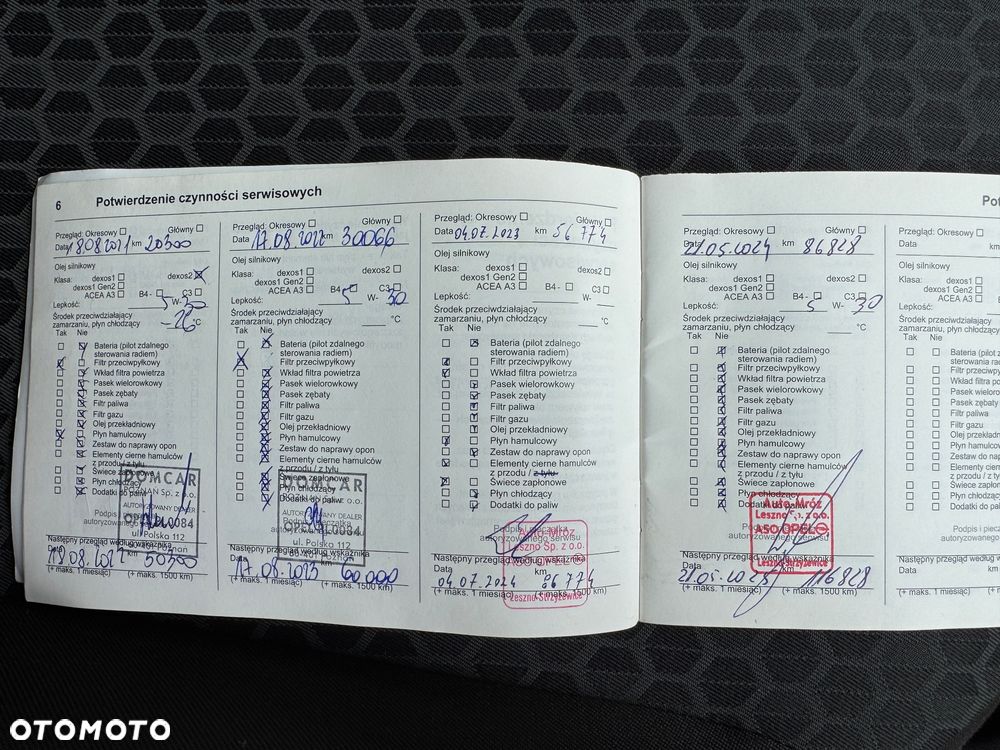 6 Potwierdzenie czynności serwisowych
Przegląd: Okresowy Główny
Data 18.08.2021 km 20300
Olej silnikowy
Klasa: dexos1 dexos2
dexos1 Gen2
ACEA A3 B4 - C3
Lepkość: 5 W- 30
Środek przeciwdziałający
zamarzaniu, płyn chłodzący -26 °C
Tak Nie
Bateria (pilot zdalnego
sterowania radiem)
Filtr przeciwpyłkowy
Wkład filtra powietrza
Pasek wielorowkowy
Pasek zębaty
Filtr paliwa
Filtr gazu
Olej przekładniowy
Płyn hamulcowy
Zestaw do naprawy opon
Elementy cierne hamulców
z przodu / z tyłu
Świece zapłonowe
Płyn chłodzący
Dodatki do paliw
DOMCAR
AUTORYZOWANY DEALER
ul. Polska 112
60-401 Poznań
Następny przegląd według wskaźnika
Data km
18.08.2022 50300
(+ maks. 1 miesiąc) (+ maks. 1500 km)
Przegląd: Okresowy Główny
Data 17.08.2022 km 30066
Olej silnikowy
Klasa: dexos1 dexos2
dexos1 Gen2
ACEA A3 B4 - C3
Lepkość: 5 W- 30
Środek przeciwdziałający
zamarzaniu, płyn chłodzący °C
Tak Nie
Bateria (pilot zdalnego
sterowania radiem)
Filtr przeciwpyłkowy
Wkład filtra powietrza
Pasek wielorowkowy
Pasek zębaty
Filtr paliwa
Filtr gazu
Olej przekładniowy
Płyn hamulcowy
Zestaw do naprawy opon
Elementy cierne hamulców
z przodu / z tyłu
Świece zapłonowe
Płyn chłodzący
Dodatki do paliw
DOMCAR
ul. Polska 112
60-401 Poznań
Następny przegląd według wskaźnika
Data km
17.08.2023 60000
(+ maks. 1 miesiąc) (+ maks. 1500 km)
Przegląd: Okresowy Główny
Data 04.07.2023 km 56774
Olej silnikowy
Klasa: dexos1 dexos2
dexos1 Gen2
ACEA A3 B4 - C3
Lepkość: W-
Środek przeciwdziałający
zamarzaniu, płyn chłodzący °C
Tak Nie
Bateria (pilot zdalnego
sterowania radiem)
Filtr przeciwpyłkowy
Wkład filtra powietrza
Pasek wielorowkowy
Pasek zębaty
Filtr paliwa
Filtr gazu
Olej przekładniowy
Płyn hamulcowy
Zestaw do naprawy opon
Elementy cierne hamulców
z przodu / z tyłu
Świece zapłonowe
Płyn chłodzący
Dodatki do paliw
Podpis i pieczątka
autoryzowanego serwisu
Auto-Mróz
Leszno Sp. z o.o.
Leszno-Strzyżewice
Następny przegląd według wskaźnika
Data km
04.07.2024 86774
(+ maks. 1 miesiąc) (+ maks. 1500 km)
Pot
Przegląd: Okresowy Główny
Data 21.05.2024 km 86828
Olej silnikowy
Klasa: dexos1 dexos2
dexos1 Gen2
ACEA A3 B4 - C3
Lepkość: 5 W- 30
Środek przeciwdziałający
zamarzaniu, płyn chłodzący °C
Tak Nie
Bateria (pilot zdalnego
sterowania radiem)
Filtr przeciwpyłkowy
Wkład filtra powietrza
Pasek wielorowkowy
Pasek zębaty
Filtr paliwa
Filtr gazu
Olej przekładniowy
Płyn hamulcowy
Zestaw do naprawy opon
Elementy cierne hamulców
z przodu / z tyłu
Świece zapłonowe
Płyn chłodzący
Dodatki do paliw
Auto-Mróz
Leszno Sp. z o.o.
ASO OPEL
Leszno-Strzyżewice
Następny przegląd według wskaźnika
Data km
21.05.2025 116828
(+ maks. 1 miesiąc) (+ maks. 1500 km)
Przegląd: Okresowy
Data km
Olej silnikowy
Klasa: dexos1
dexos1 Gen2
ACEA A3
Lepkość:
Środek przeciwdziałający
zamarzaniu, płyn chłodzący
Tak Nie
Bateria (pilot zdalnego
sterowania radiem)
Filtr przeciwpyłkowy
Wkład filtra powietrza
Pasek wielorowkowy
Pasek zębaty
Filtr paliwa
Filtr gazu
Olej przekładniowy
Płyn hamulcowy
Zestaw do naprawy
Elementy cierne
z przodu / z tyłu
Świece zapłonowe
Płyn chłodzący
Dodatki do paliw
Podpis i
autoryzowanego
Następny przegląd według
Data km
(+ maks. 1 miesiąc) (+
OTOMOTO